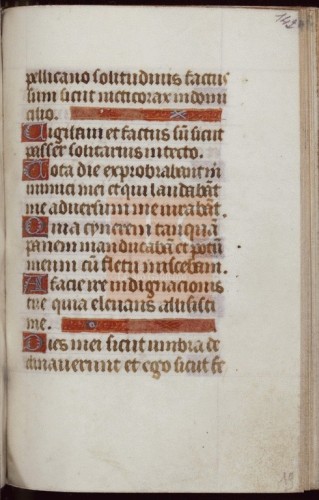 pellicano solitudinis factus
sum sicut nicticorax in domi
cilio.
Vigilavi et factus sū sicut
passer solitarius in tecto.
Tota die exprobrabant m
inimici mei et qui laudabāt
me adversum me iurabāt.
Quia cynerem tanquā
panem manducabā et potū
meum cū fletu miscebam.
A facie ire indignacionis
tue quia elevans allisisti
me.
Dies mei sicut umbra de
clinaverunt et ego sicut fe